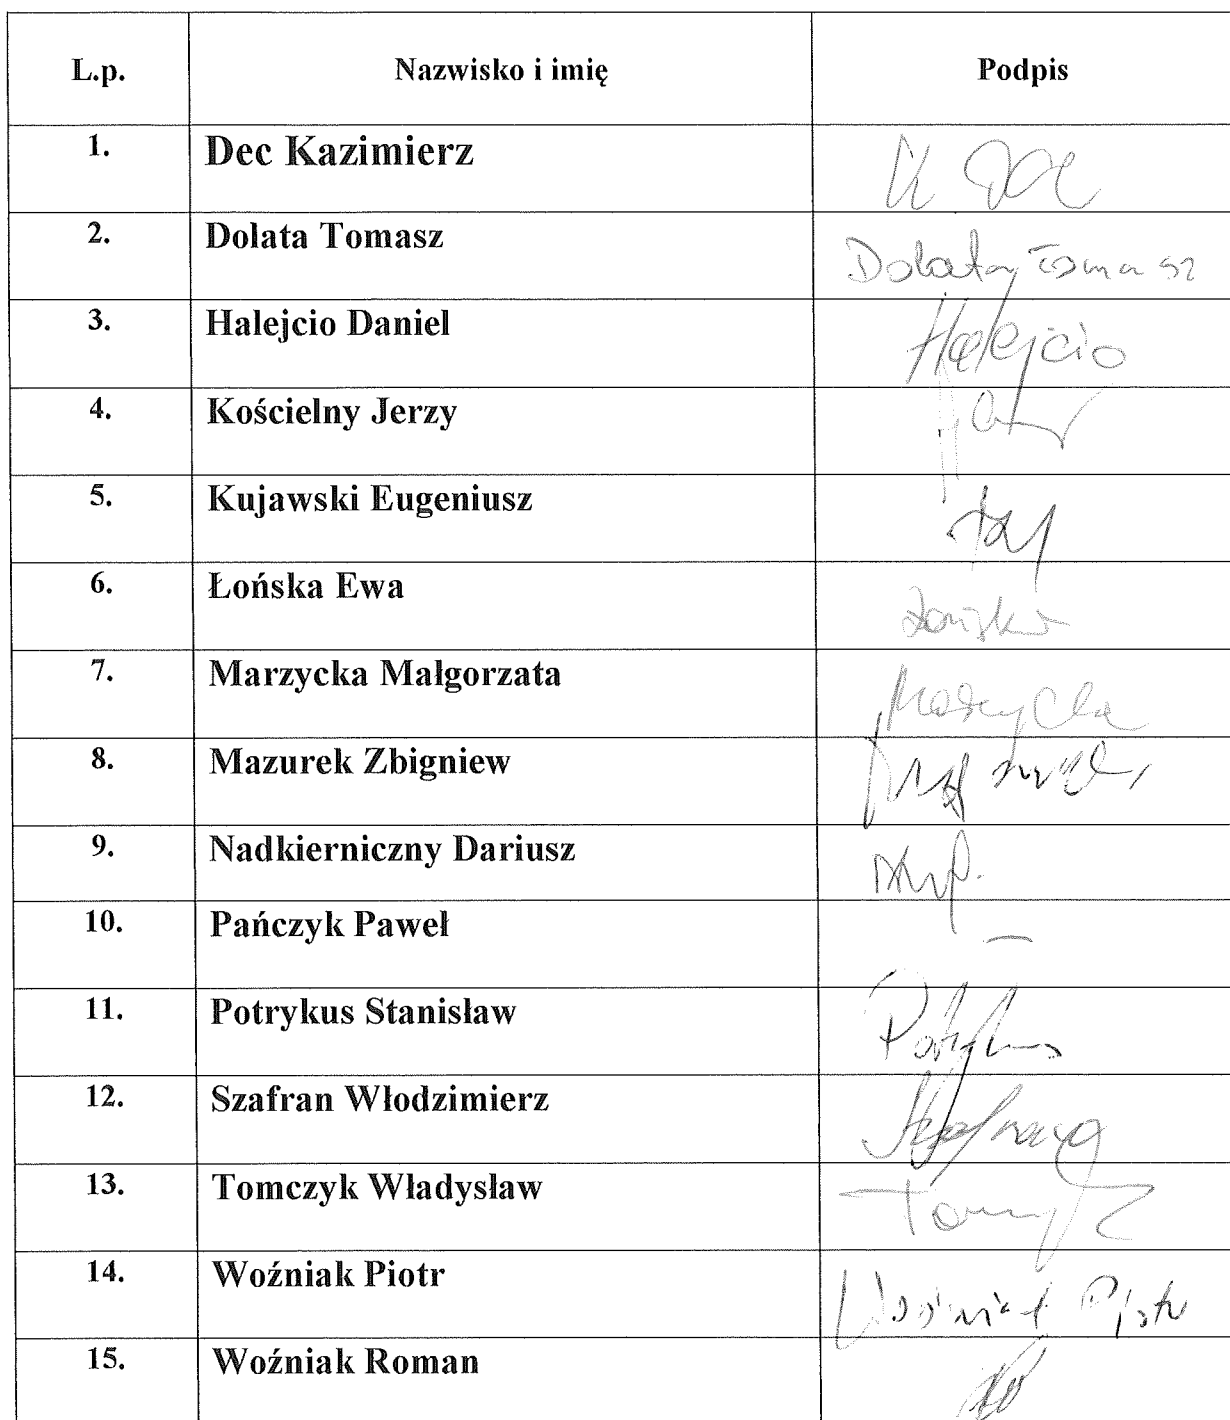 L.p. Nazwisko i imię Podpis
1. Dec Kazimierz K Dec
2. Dolata Tomasz Dolata Tomasz
3. Halejcio Daniel Halejcio
4. Kościelny Jerzy
5. Kujawski Eugeniusz
6. Łońska Ewa Łońska
7. Marzycka Małgorzata Marzycka
8. Mazurek Zbigniew
9. Nadkierniczny Dariusz
10. Pańczyk Paweł —
11. Potrykus Stanisław Potrykus
12. Szafran Włodzimierz
13. Tomczyk Władysław
14. Woźniak Piotr Woźniak Piotr
15. Woźniak Roman